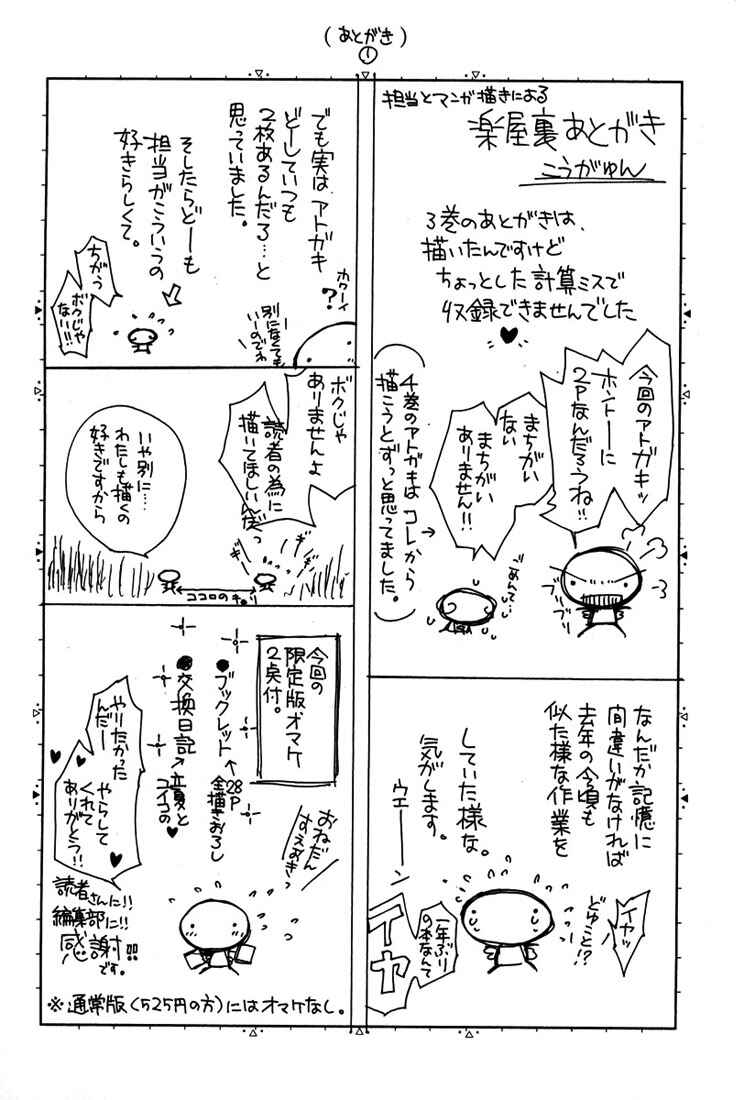 (あとがき)
①
担当とマンガ描きによる
楽屋裏あとがき
こうがゆん
3巻のあとがきは、
描いたんですけど
ちょっとした計算ミスで
収録できませんでした
♥
今回のアトガキッ
ホントーに
2Pなんだろうね!!
まちがい
ない
まちがい
ありません!!
4巻のアトガキは コレから
描こうとずっと思ってました。
ごめんて…
ブリブリ
なんだか記憶に
間違いがなければ
去年の今頃も
似た様な作業を
していた様な。
気がします。
ウエーン
イヤッ
どゆこと!?
一年ぶり
の本なんて
イヤ
でも実は アトガキ
どーしていつも
2枚あるんだろ…と
思っていました。
そしたらどーも
担当がこういうの
好きらしくて。
カワーイ
?
別になくても
いいのでわ
ちがう
ボクじゃ
ない!!!
ボクじゃ
ありませんよ
読者の為に
描いてほしいんだっ
ギギ
いや別に…
わたしも描くの
好きですから
ココロのキョリ
今回の
限定版オマケ
2点付。
●ブックレット
←28P
全描きおろし
●交換日記
↗立夏と
ユイコの♥
おねだん
すえおきっ
やりたかった
んだー
やらして
くれて
ありがとう!!
読者さんに!!
編集部に!!
感謝!!
です。
※通常版(525円の方)にはオマケなし。